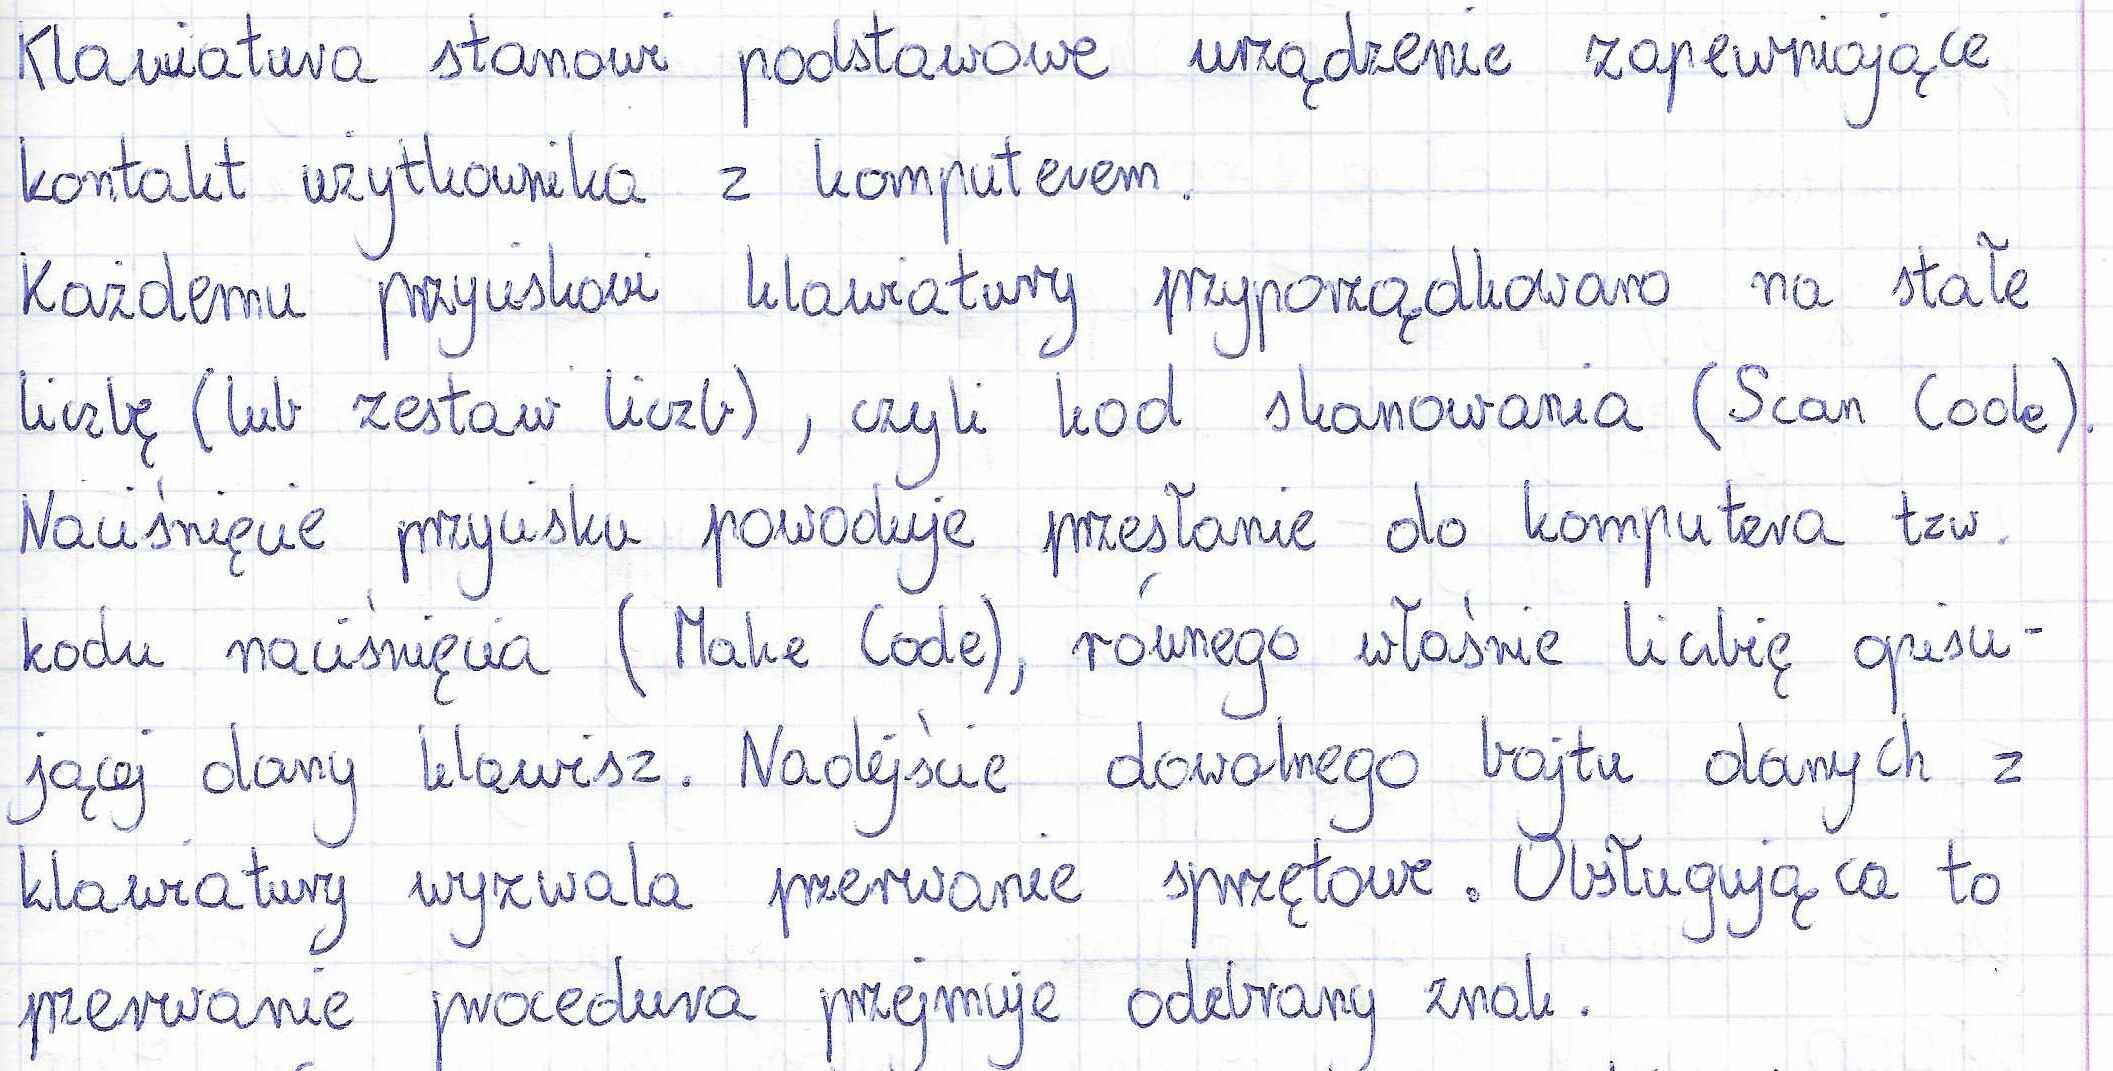 Klawiatura stanowi podstawowe urządzenie zapewniające
kontakt użytkownika z komputerem.
Każdemu przyciskowi klawiatury przyporządkowano na stałe
liczbę (lub zestaw liczb), czyli kod skanowania (Scan Code).
Naciśnięcie przycisku powoduje przesłanie do komputera tzw.
kodu naciśnięcia (Make Code), równego właśnie liczbię opisu-
jącej dany klawisz. Nadejście dowolnego bajtu danych z
klawiatury wyzwala przerwanie sprzętowe. Obsługująca to
przerwanie procedura przejmuje odebrany znak.